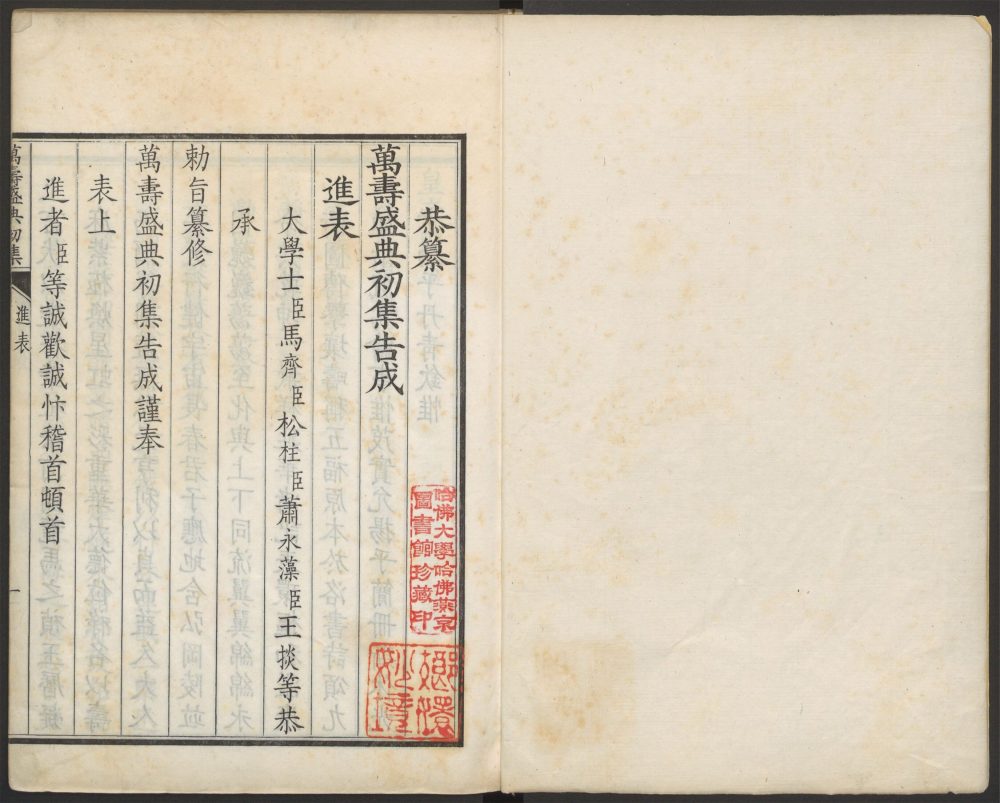 恭纂
萬壽盛典初集告成
進表
大學士臣馬齊臣松柱臣蕭永藻臣王掞等恭
承
勅旨纂修
萬壽盛典初集告成謹奉
表上
進者臣等誠歡誠忭稽首頓首
萬壽盛典初集
進表
一
哈佛大學哈佛燕京
圖書館珍藏印